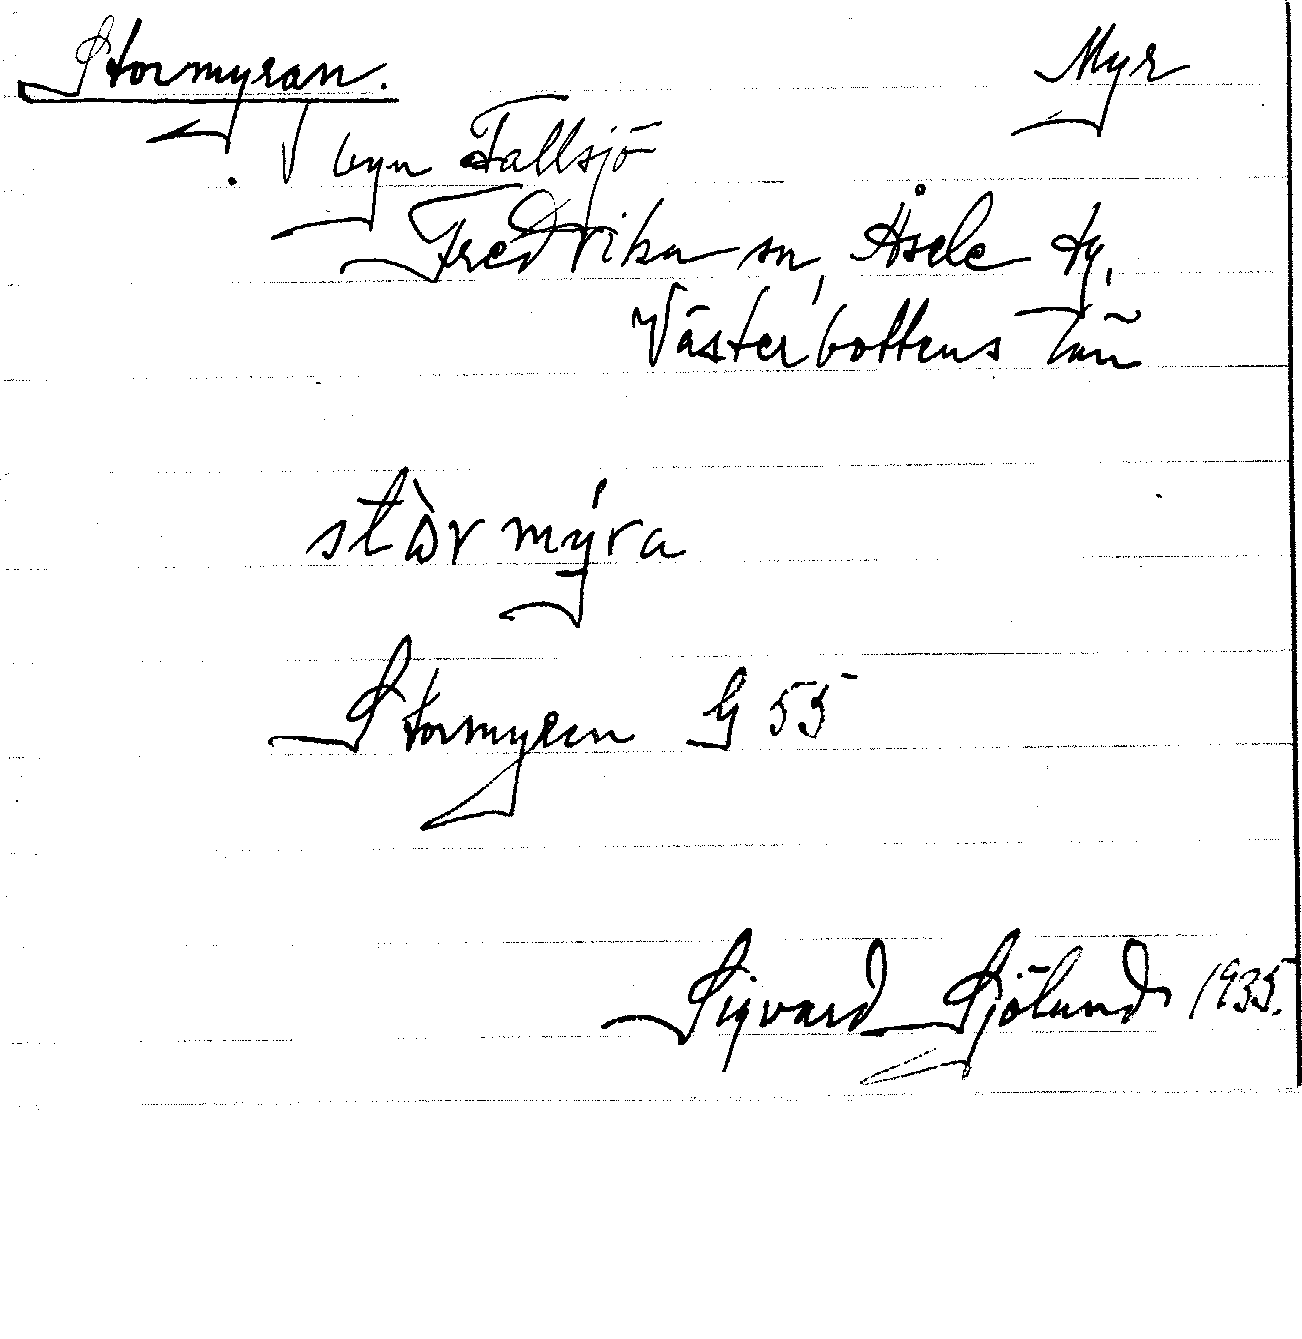 Stormyran. Myr
i byn Tallsjö
Fredrika sn, Åsele tg,
Västerbottens län
stòrmýra
Stormyren G 55
Sigvard Sjölund 1935.